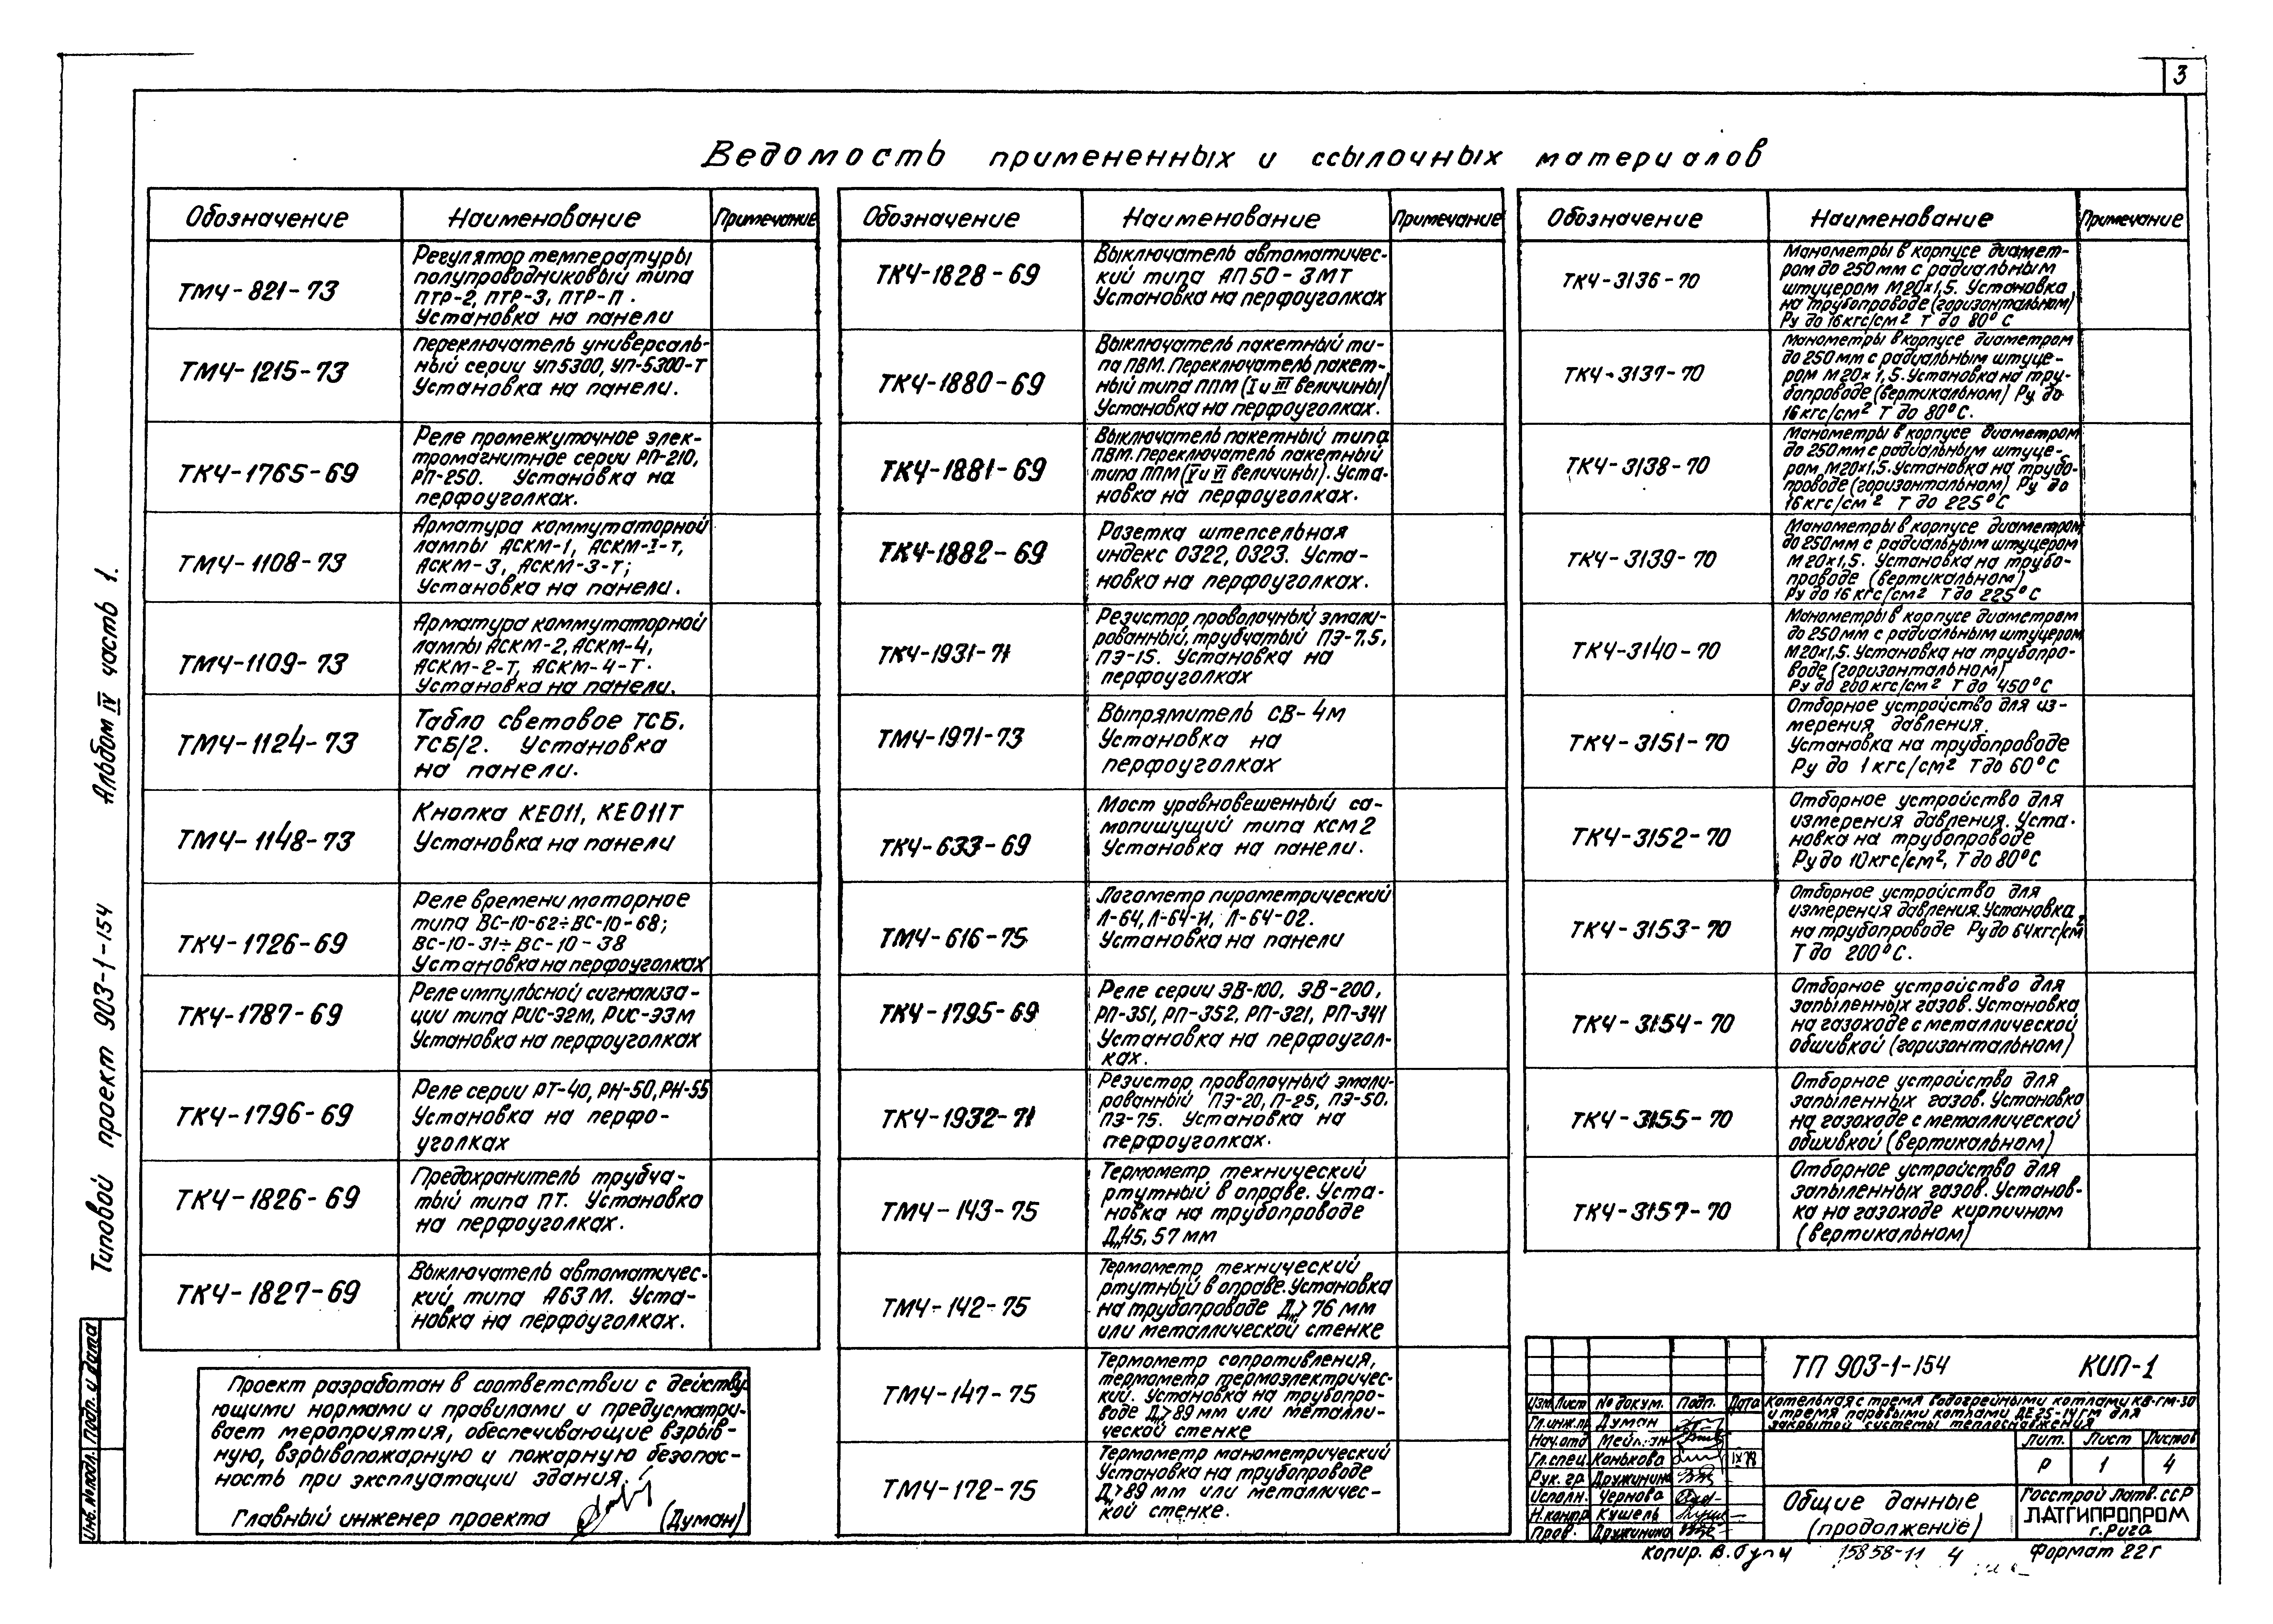 3
Ведомость примененных и ссылочных материалов
Обозначение Наименование Примечание
ТМЧ-821-73
Регулятор температуры
полупроводниковый типа
ПТР-2, ПТР-3, ПТР-П.
Установка на панели
ТМЧ-1215-73
Переключатель универсаль-
ный серии УП5300, УП-5300-Т
Установка на панели.
ТКЧ-1765-69
Реле промежуточное элек-
тромагнитное серии РП-210,
РП-250. Установка на
перфоуголках.
ТМЧ-1108-73
Арматура коммутаторной
лампы АСКМ-1, АСКМ-1-Т,
АСКМ-3, АСКМ-3-Т;
Установка на панели.
ТМЧ-1109-73
Арматура коммутаторной
лампы АСКМ-2, АСКМ-4,
АСКМ-2-Т, АСКМ-4-Т.
Установка на панели.
ТМЧ-1124-73
Табло световое ТСБ.
ТСБ/2. Установка
на панели.
ТМЧ-1148-73
Кнопка КЕ011, КЕ011Т
Установка на панели
ТКЧ-1726-69
Реле времени моторное
типа ВС-10-62÷ВС-10-68;
ВС-10-31÷ВС-10-38
Установка на перфоуголках
ТКЧ-1787-69
Реле импульсной сигнализа-
ции типа РИС-Э2М, РИС-Э3М
Установка на перфоуголках
ТКЧ-1796-69
Реле серии РТ-40, РН-50, РН-55
Установка на перфо-
уголках
ТКЧ-1826-69
Предохранитель трубча-
тый типа ПТ. Установка
на перфоуголках.
ТКЧ-1827-69
Выключатель автоматичес-
кий типа А63М. Уста-
новка на перфоуголках.
Обозначение Наименование Примечание
ТКЧ-1828-69
Выключатель автоматичес-
кий типа АП50-3МТ
Установка на перфоуголках
ТКЧ-1880-69
Выключатель пакетный ти-
па ПВМ. Переключатель пакет-
ный типа ППМ (I и III величины)
Установка на перфоуголках.
ТКЧ-1881-69
Выключатель пакетный типа
ПВМ. Переключатель пакетный
типа ППМ (V и VI величины). Уста-
новка на перфоуголках.
ТКЧ-1882-69
Розетка штепсельная
индекс 0322, 0323. Уста-
новка на перфоуголках.
ТКЧ-1931-71
Резистор проволочный эмали-
рованный, трубчатый ПЭ-7,5,
ПЭ-15. Установка на
перфоуголках
ТМЧ-1971-73
Выпрямитель СВ-4м
Установка на
перфоуголках
ТКЧ-633-69
Мост уравновешенный са-
мопишущий типа КСМ2
Установка на панели.
ТМЧ-616-75
Логометр пирометрический
Л-64, Л-64-И, Л-64-02.
Установка на панели
ТКЧ-1795-69
Реле серии ЭВ-100, ЭВ-200,
РП-351, РП-352, РП-321, РП-341
Установка на перфоугол-
ках.
ТКЧ-1932-71
Резистор проволочный эмали-
рованный ПЭ-20, П-25, ПЭ-50,
ПЭ-75. Установка на
перфоуголках.
ТМЧ-143-75
Термометр технический
ртутный в оправе. Уста-
новка на трубопроводе
Дн45, 57 мм
ТМЧ-142-75
Термометр технический
ртутный в оправе. Установка
на трубопроводе Дн > 76 мм
или металлической стенке
ТМЧ-147-75
Термометр сопротивления,
термометр термоэлектричес-
кий. Установка на трубопро-
воде Дн > 89 мм или металли-
ческой стенке
ТМЧ-172-75
Термометр манометрический
Установка на трубопроводе
Дн > 89 мм или металличес-
кой стенке.
Обозначение Наименование Примечание
ТКЧ-3136-70
Манометры в корпусе диамет-
ром до 250 мм с радиальным
штуцером М20×1,5. Установка
на трубопроводе (горизонтальном)
Ру до 16 кгс/см² Т до 80°С
ТКЧ-3137-70
Манометры в корпусе диаметром
до 250 мм с радиальным штуце-
ром М20×1,5. Установка на тру-
бопроводе (вертикальном) Ру до
16 кгс/см² Т до 80°С.
ТКЧ-3138-70
Манометры в корпусе диаметром
до 250 мм с радиальным штуце-
ром М20×1,5. Установка на трубо-
проводе (горизонтальном) Ру до
16 кгс/см² Т до 225°С
ТКЧ-3139-70
Манометры в корпусе диаметром
до 250мм с радиальным штуцером
М20×1,5. Установка на трубо-
проводе (вертикальном)
Ру до 16 кгс/см² Т до 225°С
ТКЧ-3140-70
Манометры в корпусе диаметрам
до 250 мм с радиальным штуцером
М20×1,5. Установка на трубопро-
воде (горизонтальном)
Ру до 200 кгс/см² Т до 450°С
ТКЧ-3151-70
Отборное устройство для из-
мерения давления.
Установка на трубопроводе
Ру до 1 кгс/см² Т до 60°С
ТКЧ-3152-70
Отборное устройство для
измерения давления. Уста-
новка на трубопроводе
Ру до 10 кгс/см², Т до 80°С
ТКЧ-3153-70
Отборное устройство для
измерения давления. Установка
на трубопроводе Ру до 64 кгс/см²
Т до 200°С.
ТКЧ-3154-70
Отборное устройство для
запыленных газов. Установка
на газоходе с металлической
обшивкой (горизонтальном)
ТКЧ-3155-70
Отборное устройство для
запыленных газов. Установка
на газоходе с металлической
обшивкой (вертикальном)
ТКЧ-3157-70
Отборное устройство для
запыленных газов. Установ-
ка на газоходе кирпичном
(вертикальном)
Типовой проект 903-1-154 Альбом IV часть 1.
Инв. № подл. Подп. и дата
Проект разработан в соответствии с действу-
ющими нормами и правилами и предусматри-
вает мероприятия, обеспечивающие взрыв-
ную, взрывопожарную и пожарную безопас-
ность при эксплуатации здания.
Главный инженер проекта (Думан)
ТП 903-1-154 КИП-1
Изм. Лист № докум. Подп. Дата
Гл.инж.пр Думан
Нач.отд
Гл.спец. Конькова
Рук. гр. Дружинина
Исполн. Чернова
Н.контр Кушель
Пров. Дружинина
Котельная с тремя водогрейными котлами КВ-ГМ-30
и тремя паровыми котлами ДЕ25-14ГМ для
закрытой системы теплоснабжения
Лит. Лист Листов
Р 1 4
Общие данные
(продолжение)
Госстрой Латв.ССР
ЛАТГИПРОПРОМ
г.Рига
Копир. 15858-11 4 Формат 22г